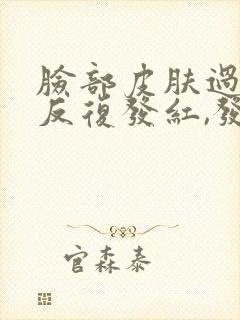 臉部皮肤過
反復發紅,發
官森泰